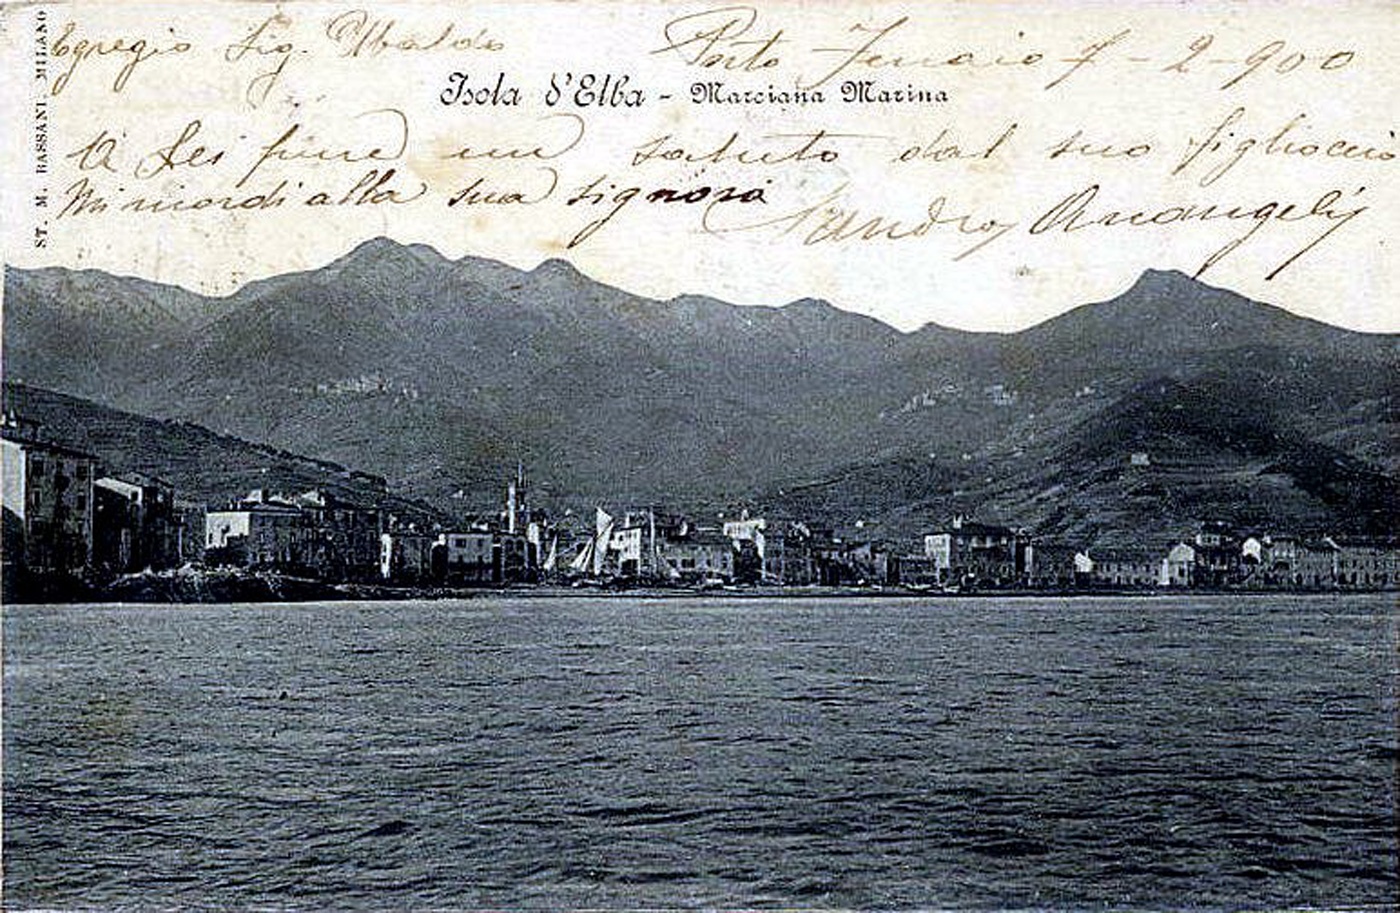 Egregio Sig. Ubaldo
Porto Ferraio 7-2-900
Isola d'Elba - Marciana Marina
A Lei pure un saluto dal suo figlioccio
Mi ricordi alla sua signora
Sandro
ST. M. BASSANI, MILANO